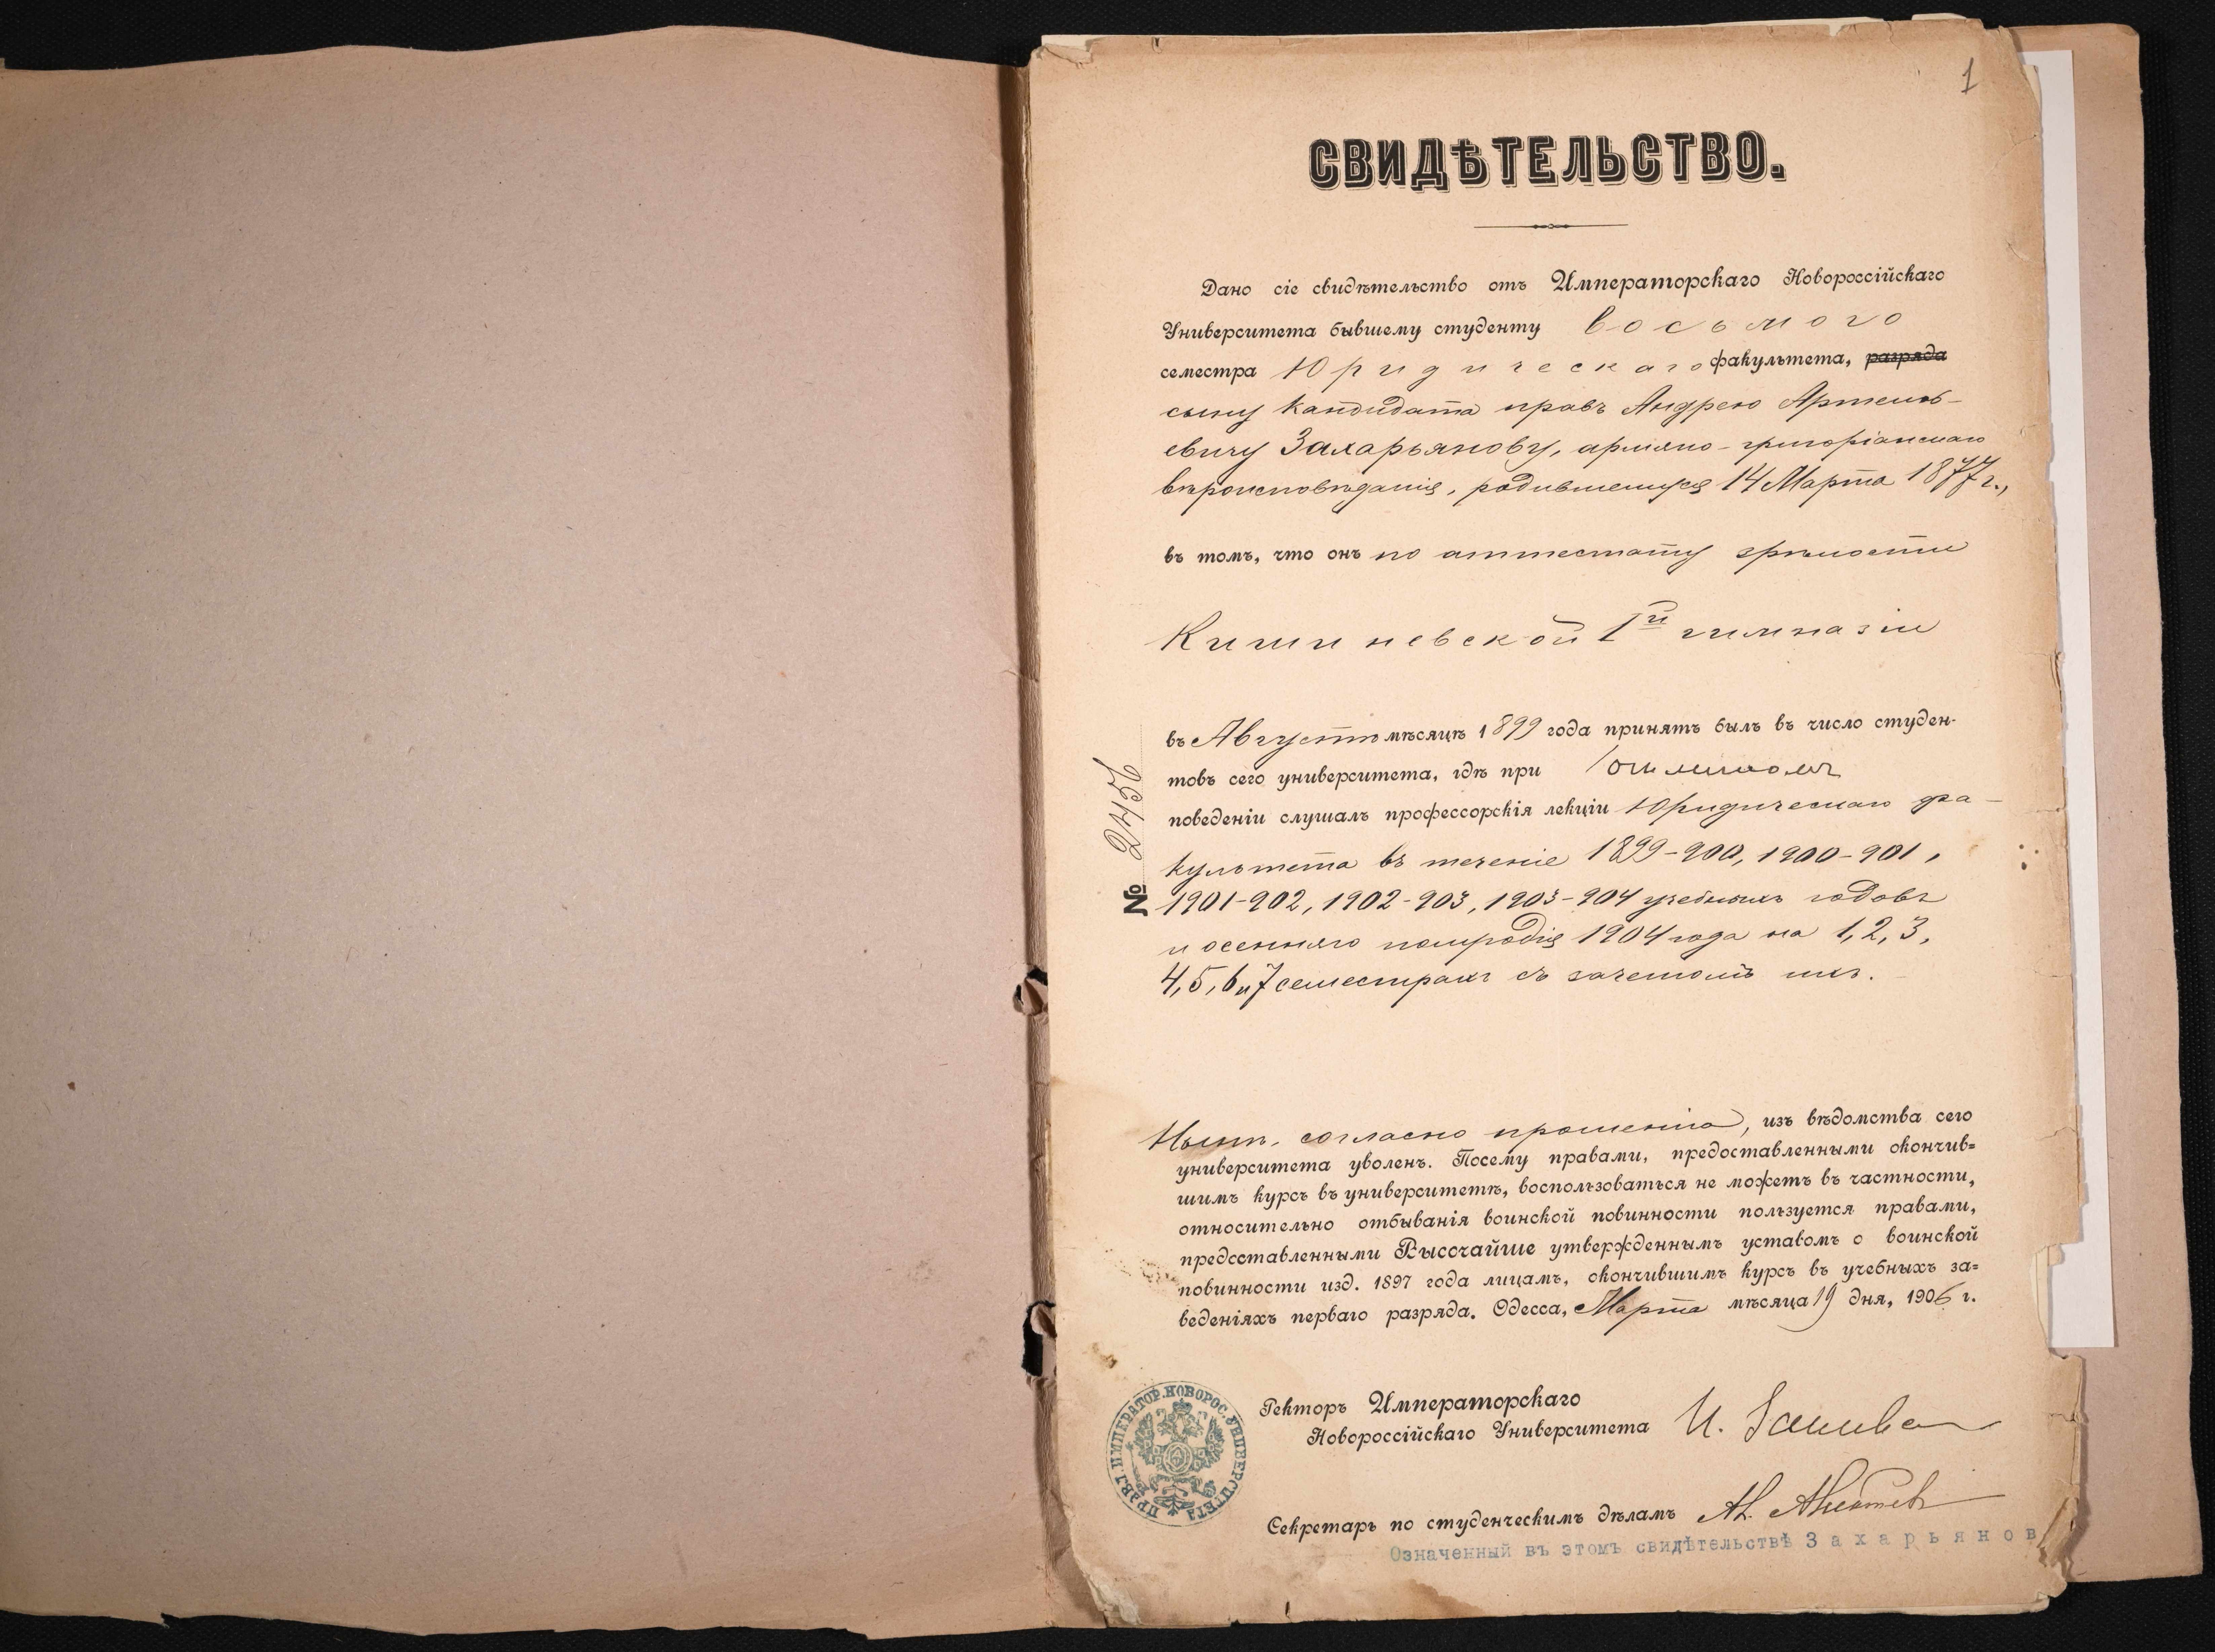 1
СВИДѢТЕЛЬСТВО.
Дано сіе свидѣтельство отъ Императорскаго Новороссійскаго
Университета бывшему студенту восьмого
семестра Юридическаго факультета, разряда
сыну кандидата правъ Андрею Артемь-
евичу Захарьянову, армяно-григоріанскаго
вѣроисповѣданія, родившемуся 14 Марта 1877 г.,
въ томъ, что онъ по аттестату зрѣлости
Кишиневской 1й гимназіи
въ Августѣ мѣсяцѣ 1899 года принятъ былъ въ число студен-
товъ сего университета, гдѣ при отличномъ
поведеніи слушалъ профессорскія лекціи Юридическаго фа-
культета въ теченіе 1899-900, 1900-901,
1901-902, 1902-903, 1903-904 учебныхъ годовъ
и осенняго полугодія 1904 года на 1, 2, 3,
4, 5, 6 и 7 семестрахъ съ зачетомъ ихъ.
№ 2456
Нынѣ, согласно прошенію, изъ вѣдомства сего
университета уволенъ. Посему правами, предоставленными окончив=
шимъ курсъ въ университетѣ, воспользоваться не можетъ въ частности,
относительно отбыванія воинской повинности пользуется правами,
предоставленными Высочайше утвержденнымъ уставомъ о воинской
повинности изд. 1897 года лицамъ, окончившимъ курсъ въ учебныхъ за=
веденіяхъ перваго разряда. Одесса, Марта мѣсяца 19 дня, 1906 г.
ПРАВЛ. ИМПЕРАТОР. НОВОРОС. УНИВЕРСИТЕТА
Ректоръ Императорскаго
Новороссійскаго Университета И.
Секретарь по студенческимъ дѣламъ
Означенный въ этомъ свидѣтельствѣ Захарьянов